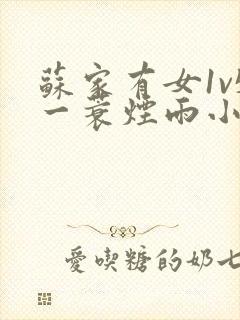 蘇家有女1v
一蓑煙雨小
愛喫糖的奶七